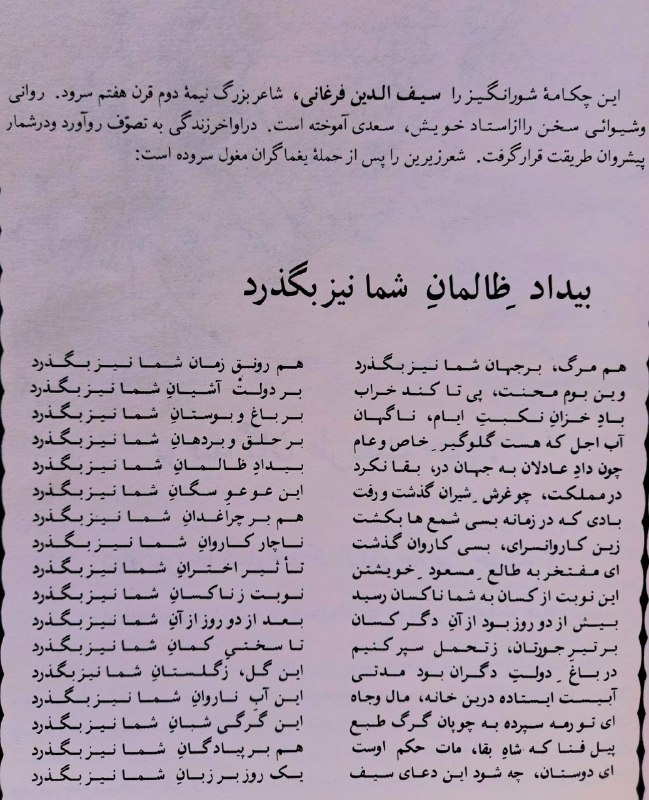 این چکامهٔ شورانگیز را سیف الدین فرغانی، شاعر بزرگ نیمهٔ دوم قرن هفتم سرود. روانی
وشیوائی سخن راازاستاد خویش، سعدی آموخته است. درِاواخرزندگی به تصوّف روآورد ودرشمار
پیشروان طریقت قرارگرفت. شعرزیرین را پس از حملهٔ یغماگران مغول سروده است:
بیداد ِظالمانِ شما نیز بگذرد
هم مرگ، برجهان شما نیز بگذرد هم رونق زمان شما نیز بگذرد
وین بوم محنت، پی تا کند خراب بر دولتْ آشیانِ شما نیز بگذرد
بادِ خزانِ نکبتِ ایام، ناگهان بر باغ و بوستانِ شما نیز بگذرد
آب اجل که هست گلوگیر ِخاص وعام بر حلق و بردهانِ شما نیز بگذرد
چون دادِ عادلان به جهان در، بقا نکرد بیدادِ ظالمانِ شما نیز بگذرد
در مملکت، چو غرش ِشیران گذشت و رفت این عوعوِ سگانِ شما نیز بگذرد
بادی که در زمانه بسی شمع ها بکشت هم بر چراغدانِ شما نیز بگذرد
زین کاروانسرای، بسی کاروان گذشت ناچار کاروانِ شما نیز بگذرد
ای مفتخر به طالع ِمسعود ِخویشتن تأثیر اخترانِ شما نیز بگذرد
این نوبت از کسان به شما ناکسان رسید نوبت ز ناکسانِ شما نیز بگذرد
بیش از دو روز بود از آنِ دگر کسان بعد از دو روز از آنِ شما نیز بگذرد
بر تیرِ جورتان، ز تحمل سپر کنیم تا سختیِ کمانِ شما نیز بگذرد
در باغ ِدولتِ دگران بود مدتی این گل، ز گلستانِ شما نیز بگذرد
آبیست ایستاده درین خانه، مال وجاه این آبِ ناروانِ شما نیز بگذرد
ای تو رمه سپرده به چوپان گرگ طبع این گرگیِ شبانِ شما نیز بگذرد
پیل فنا که شاهِ بقا، مات حکم اوست هم بر پیادگانِ شما نیز بگذرد
ای دوستان، چه شود این دعای سیف یک روز بر زبانِ شما نیز بگذرد